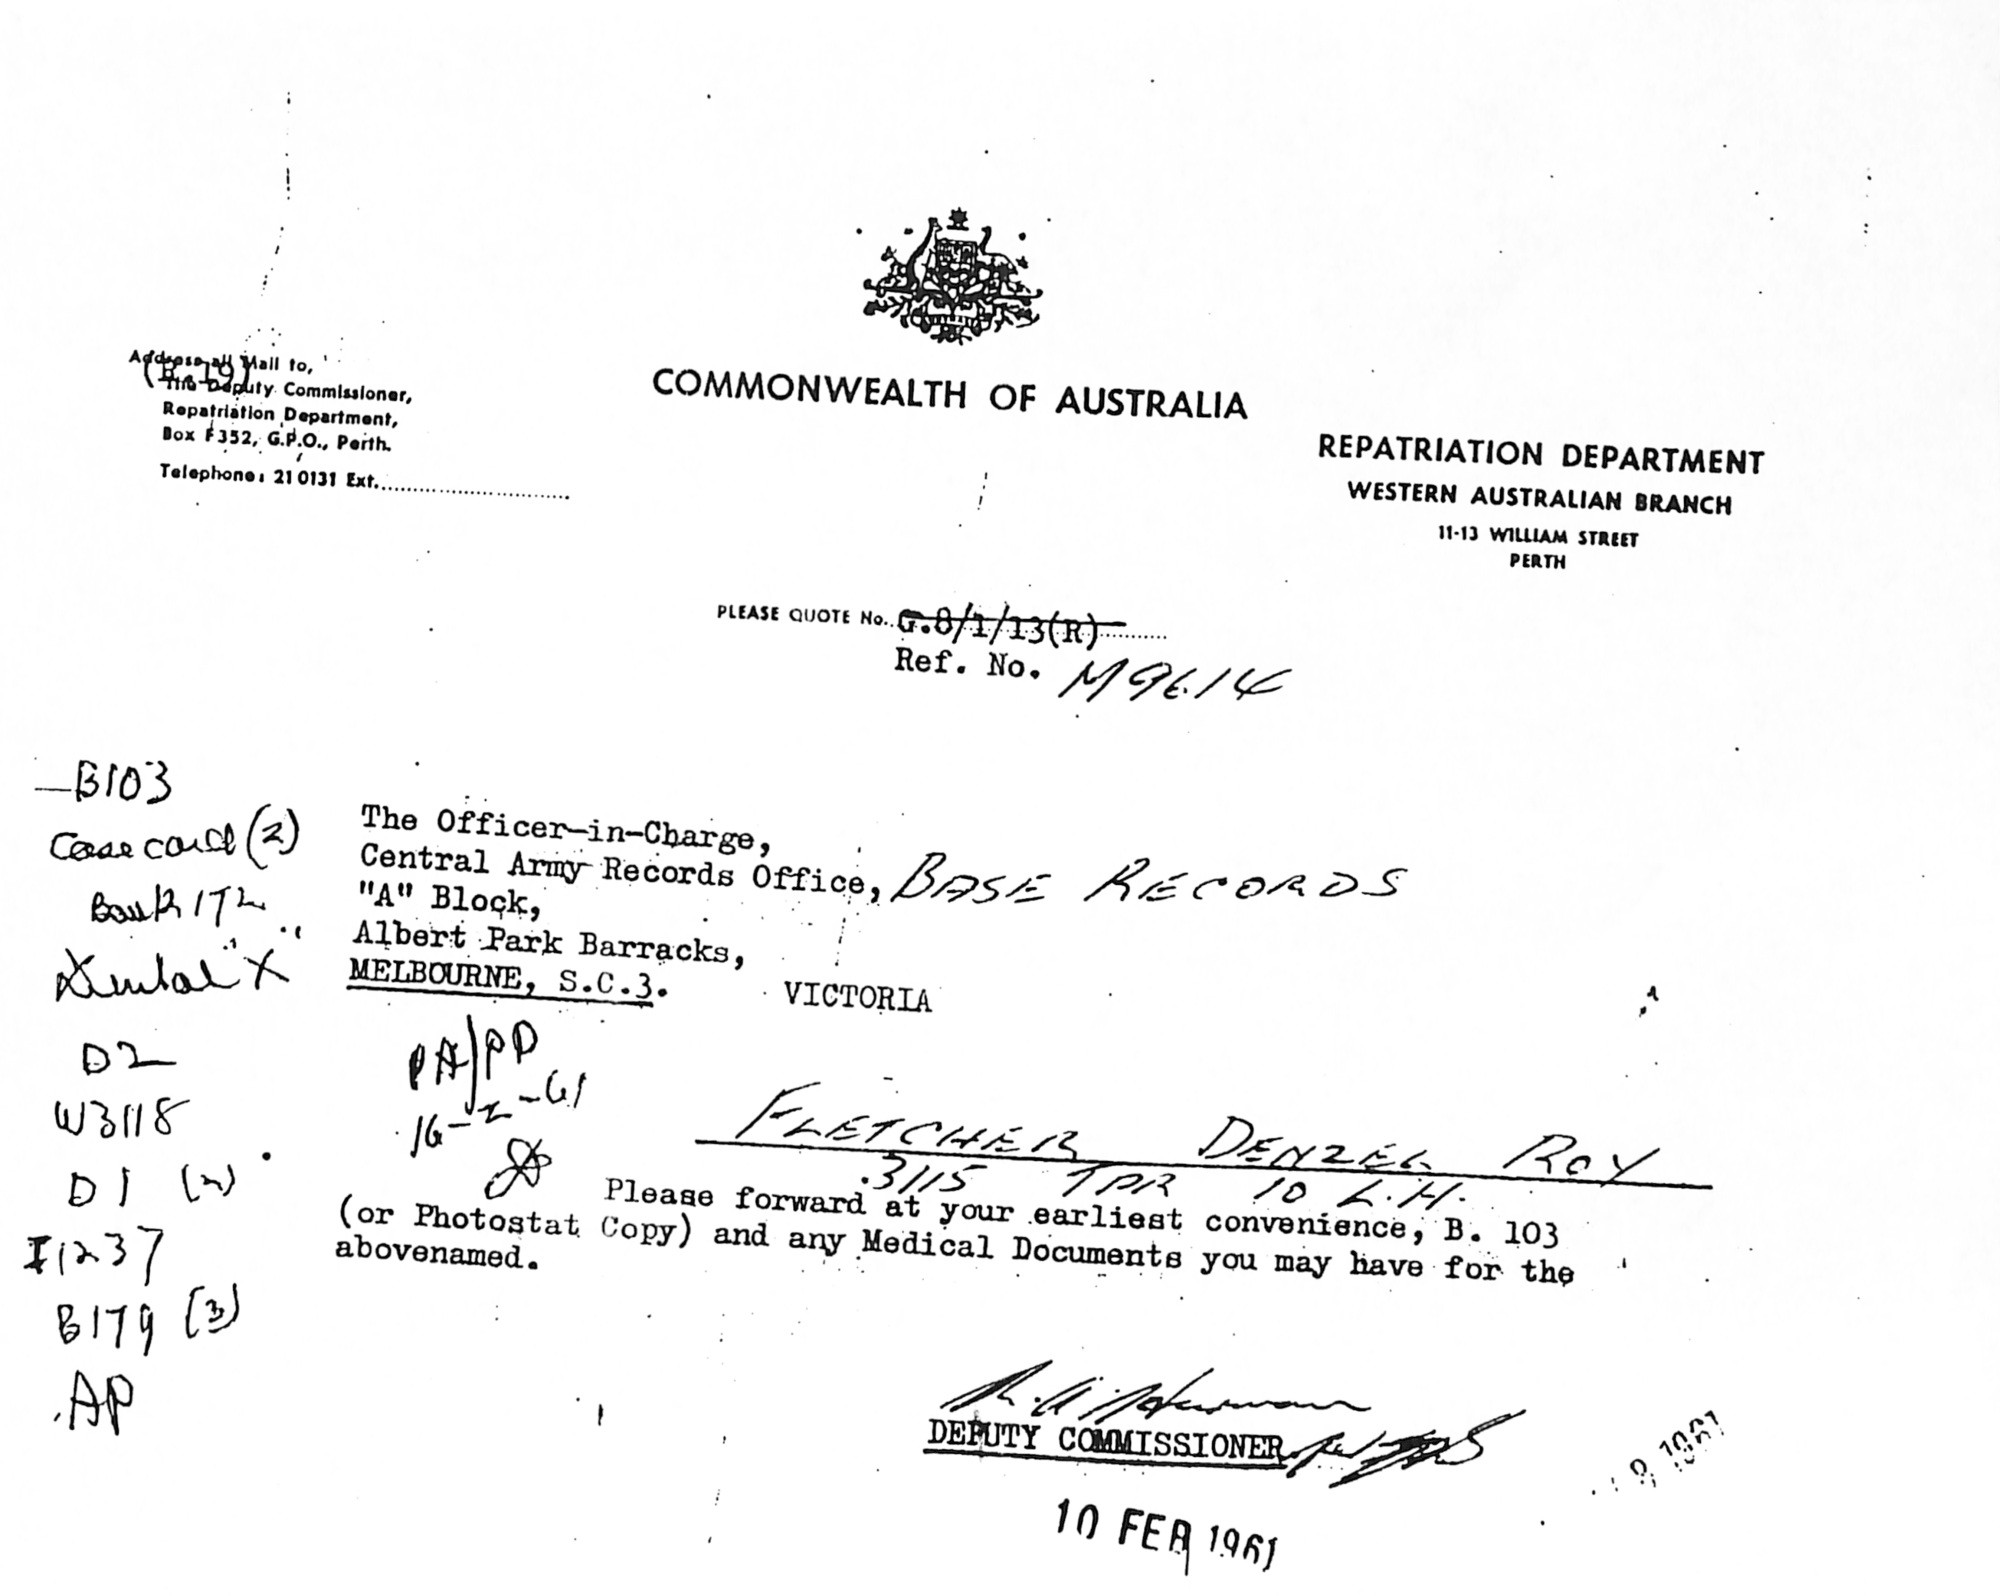 Address all Mail to,
(R.19)
The Deputy Commissioner,
Repatriation Department,
Box F352, G.P.O., Perth.
Telephone: 21 0131 Ext.
COMMONWEALTH OF AUSTRALIA
REPATRIATION DEPARTMENT
WESTERN AUSTRALIAN BRANCH
11-13 WILLIAM STREET
PERTH
PLEASE QUOTE No. G.8/1/13(R)
Ref. No. M9614
B103
Case card (2)
172
Dental "X"
D2
W3118
D1 (2)
I1237
B179 (3)
AP
The Officer-in-Charge,
Central Army Records Office, BASE RECORDS
"A" Block,
Albert Park Barracks,
MELBOURNE, S.C.3. VICTORIA
PA/PP
16-2-61
FLETCHER DENZEL ROY
3115 TPR 10 L.H.
Please forward at your earliest convenience, B. 103
(or Photostat Copy) and any Medical Documents you may have for the
abovenamed.
DEPUTY COMMISSIONER
10 FEB 1961
1961